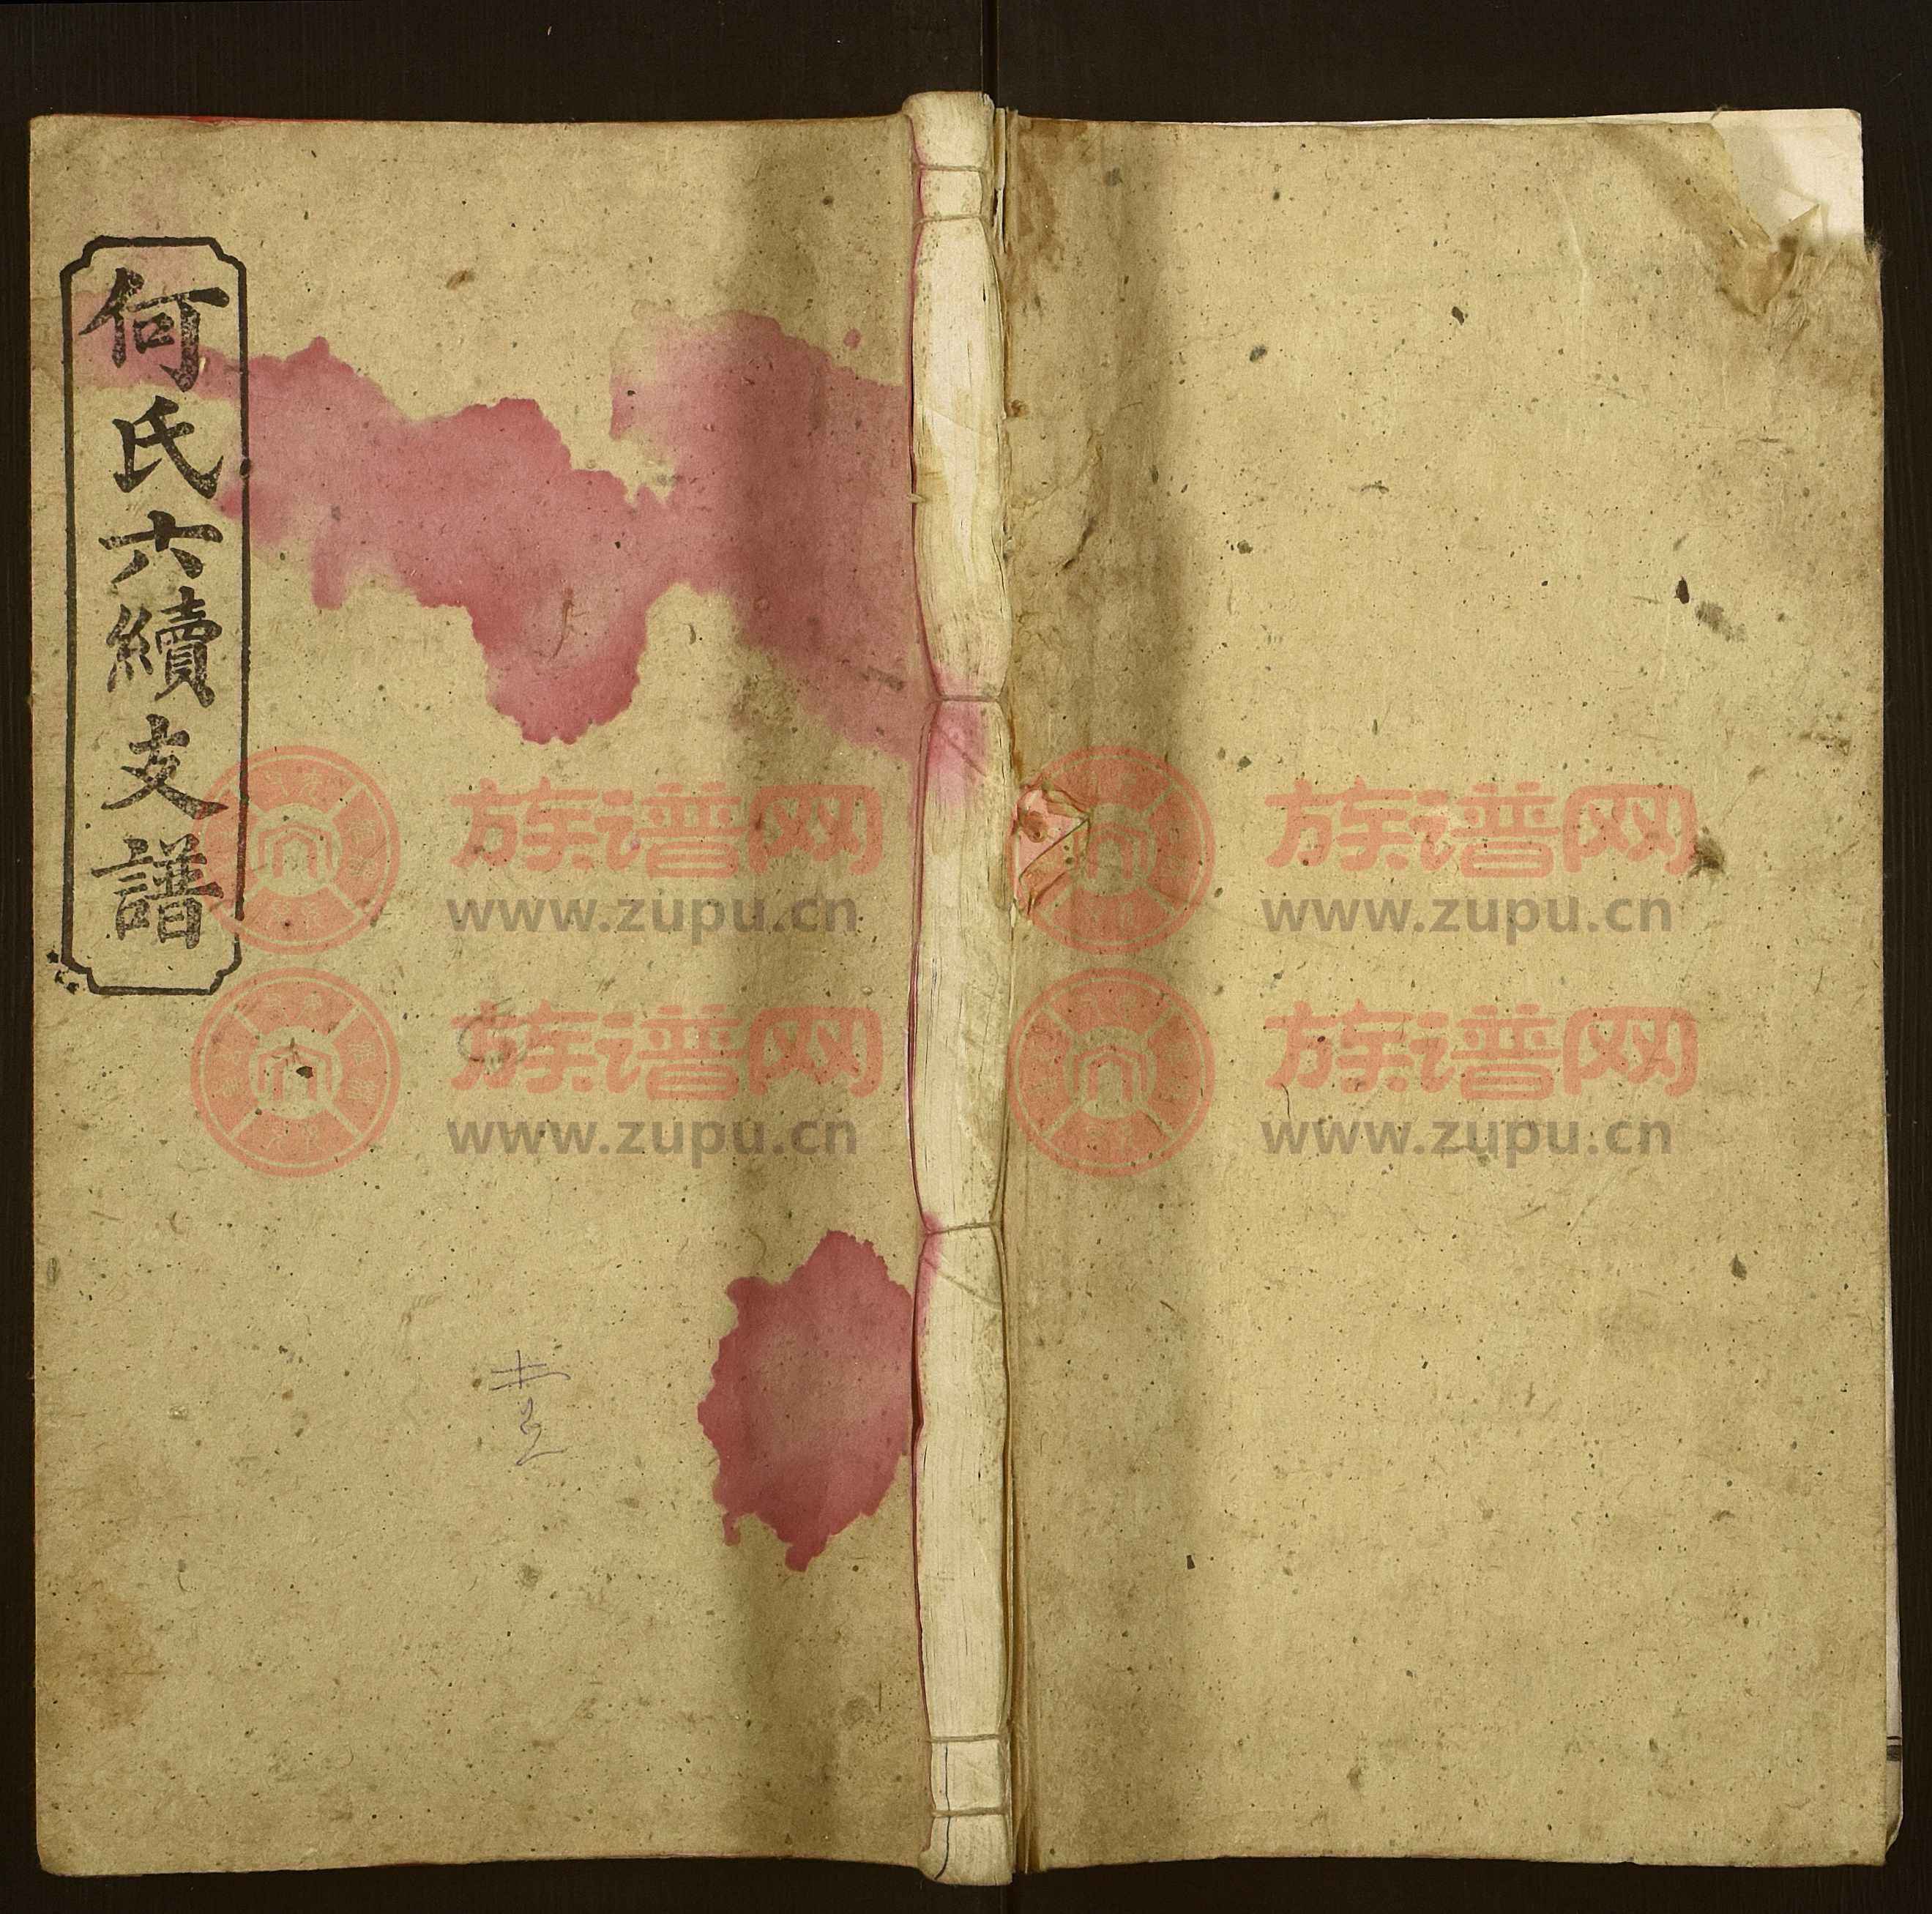 何氏六續支譜
族谱网 族谱网
www.zupu.cn www.zupu.cn
族谱网 族谱网
www.zupu.cn www.zupu.cn